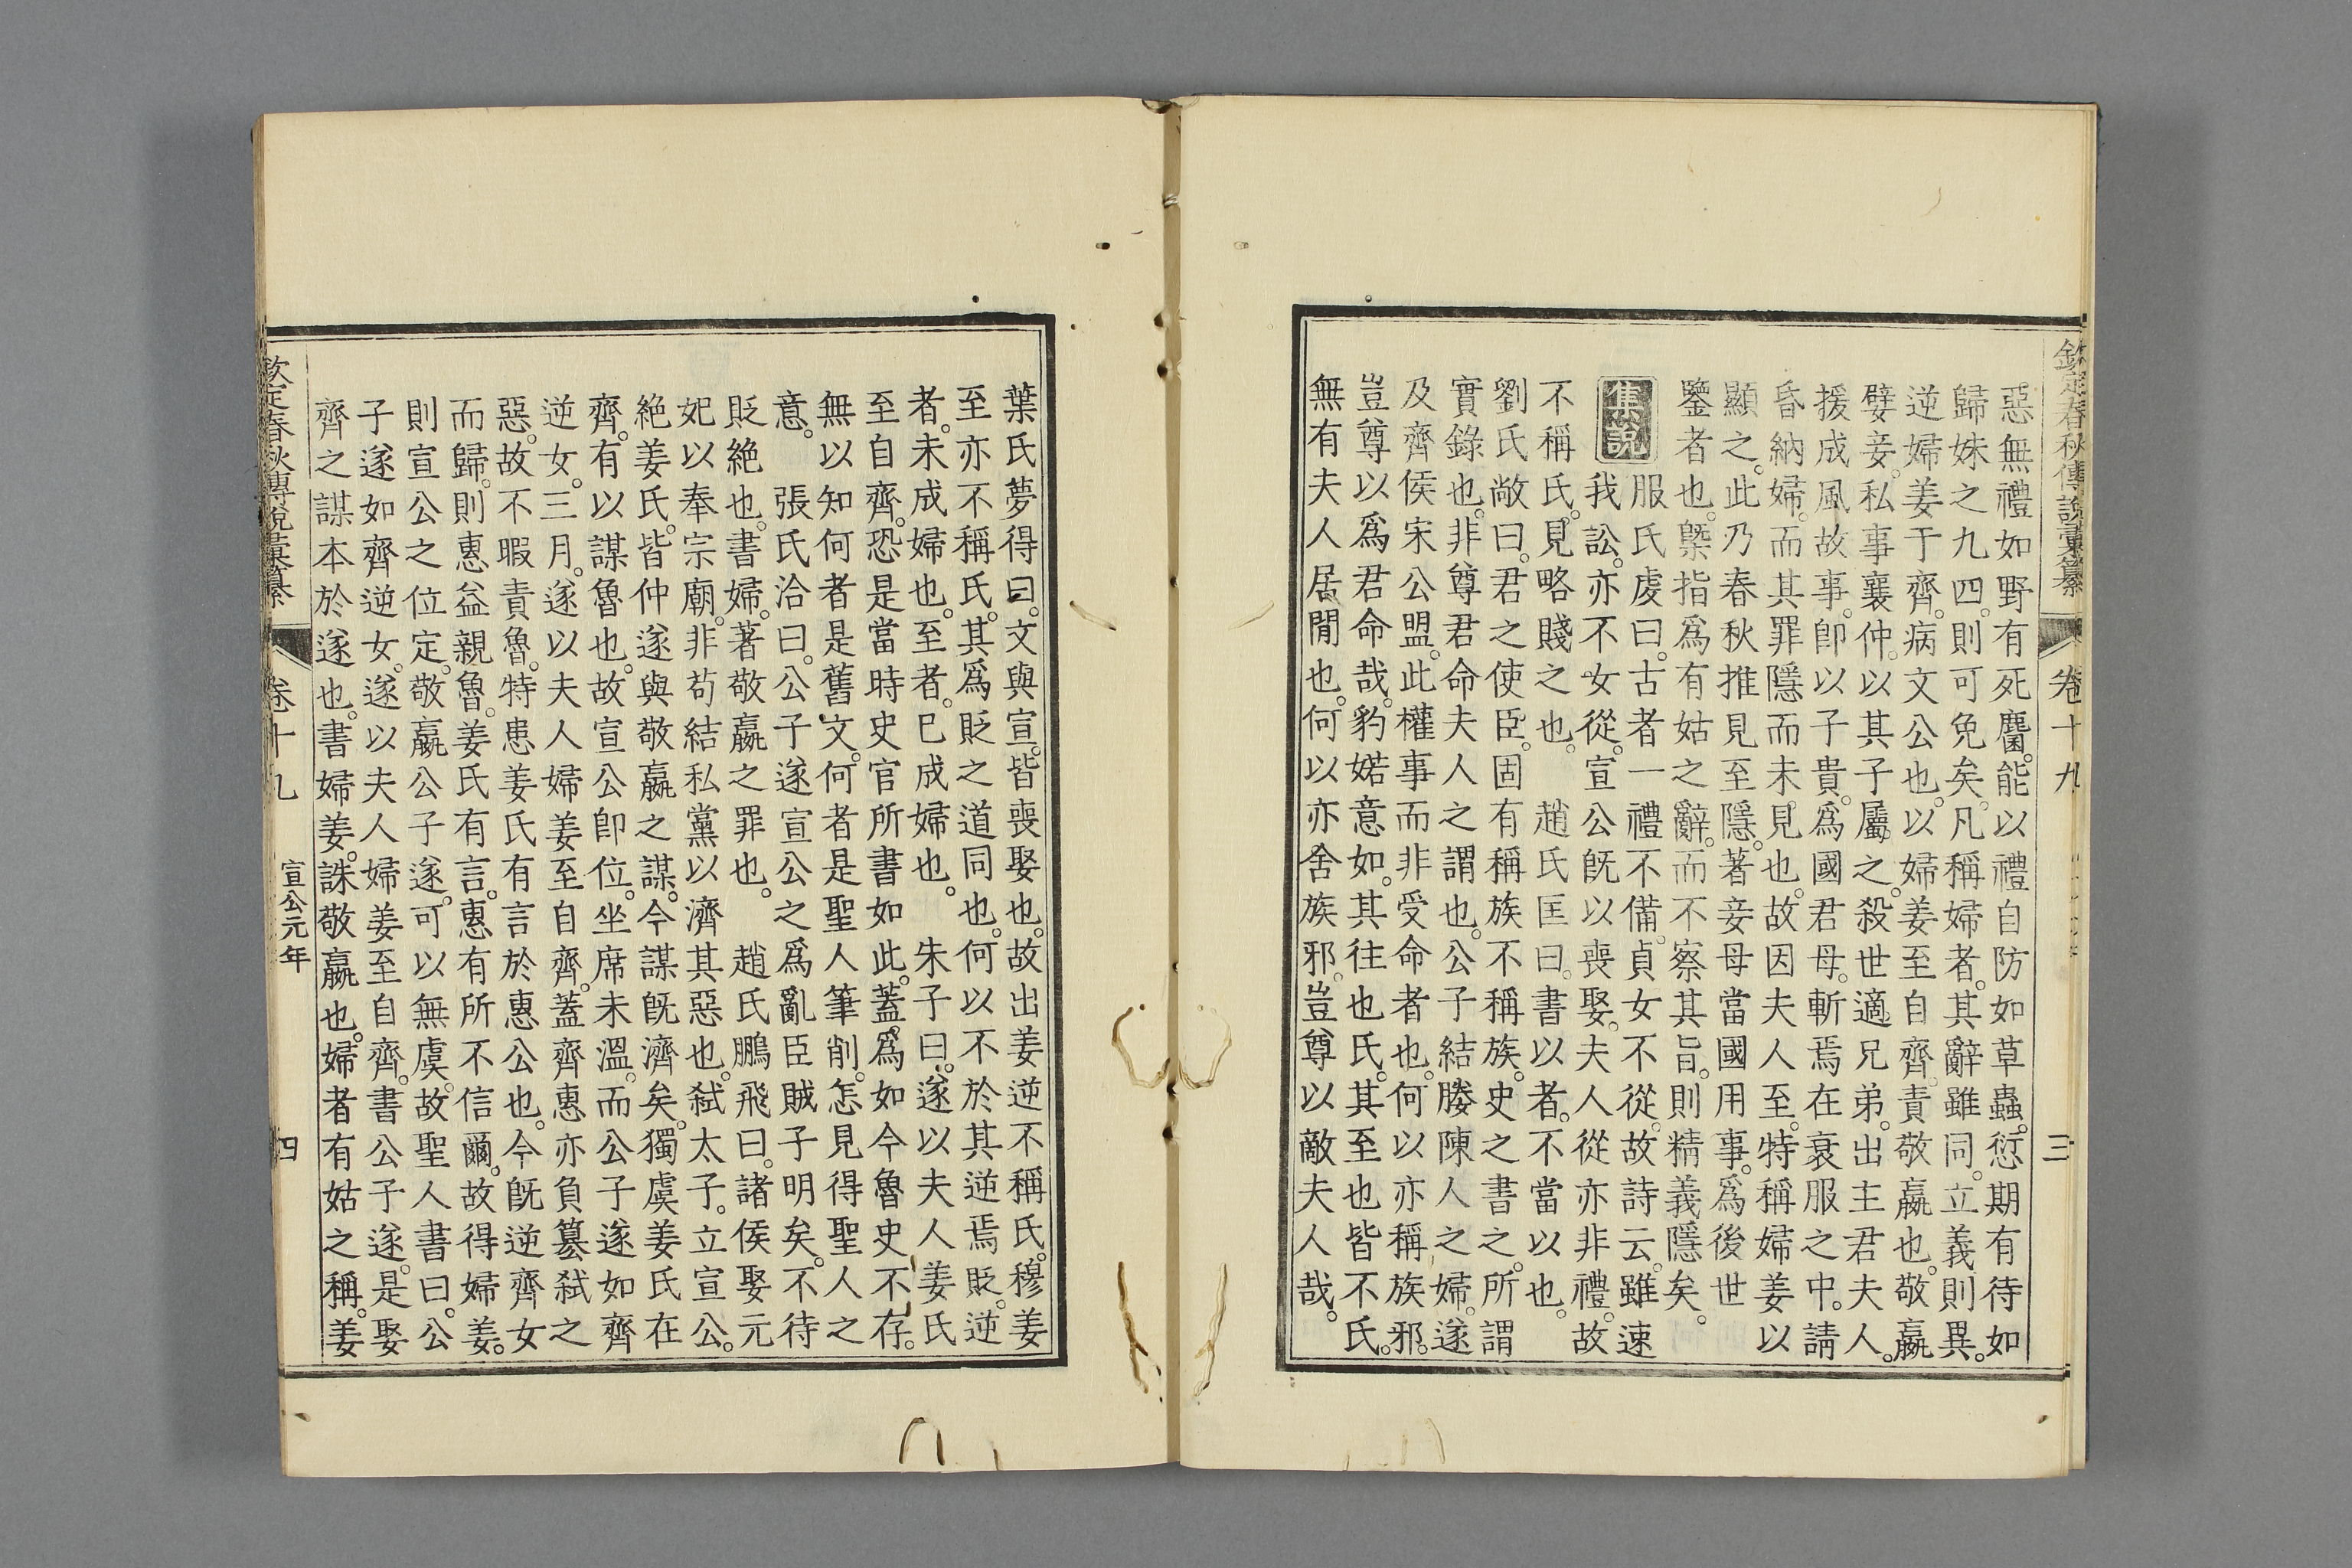 欽定春秋傳說彙纂 卷十九 三
惡無禮如野有死麕。能以禮自防如草蟲。愆期有待如
歸妹之九四。則可免矣。凡稱婦者。其辭雖同。立義則異。
逆婦姜于齊。病文公也。以婦姜至自齊。責敬嬴也。敬嬴
嬖妾。私事襄仲。以其子屬之。殺世適兄弟。出主君夫人。
援成風故事。卽以子貴。爲國君母。斬焉在衰服之中。請
昏納婦。而其罪隱而未見也。故因夫人至。特稱婦姜以
顯之。此乃春秋推見至隱。著妾母當國用事。爲後世
鑒者也。槩指爲有姑之辭。而不察其旨。則精義隱矣。
集說 服氏虔曰。古者一禮不備。貞女不從。故詩云。雖速
我訟。亦不女從。宣公旣以喪娶。夫人從亦非禮。故
不稱氏。見略賤之也。 趙氏匡曰。書以者。不當以也。
劉氏敞曰。君之使臣。固有稱族不稱族。史之書之。所謂
實錄也。非尊君命夫人之謂也。公子結媵陳人之婦。遂
及齊侯宋公盟。此權事而非受命者也。何以亦稱族邪。
豈尊以爲君命哉。豹婼意如。其往也氏。其至也皆不氏。
無有夫人居閒也。何以亦舍族邪。豈尊以敵夫人哉。
葉氏夢得曰。文與宣。皆喪娶也。故出姜逆不稱氏。穆姜
至亦不稱氏。其爲貶之道同也。何以不於其逆焉貶。逆
者。未成婦也。至者。已成婦也。 朱子曰。遂以夫人姜氏
至自齊。恐是當時史官所書如此。蓋爲如今魯史不存。
無以知何者是舊文。何者是聖人筆削。怎見得聖人之
意。 張氏洽曰。公子遂宣公之爲亂臣賊子明矣。不待
貶絕也。書婦。著敬嬴之罪也。 趙氏鵬飛曰。諸侯娶元
妃以奉宗廟。非苟結私黨以濟其惡也。弑太子。立宣公。
絕姜氏。皆仲遂與敬嬴之謀。今謀旣濟矣。獨虞姜氏在
齊。有以謀魯也。故宣公卽位。坐席未溫。而公子遂如齊
逆女。三月。遂以夫人婦姜至自齊。蓋齊惠亦負簒弑之
惡。故不暇責魯。特患姜氏有言於惠公也。今旣逆齊女
而歸。則惠益親魯。姜氏有言。惠有所不信爾。故得婦姜。
則宣公之位定。敬嬴公子遂。可以無虞。故聖人書曰。公
子遂如齊逆女。遂以夫人婦姜至自齊。書公子遂。是娶
齊之謀本於遂也。書婦姜。誅敬嬴也。婦者有姑之稱。姜
欽定春秋傳說彙纂 卷十九 宣公元年 四